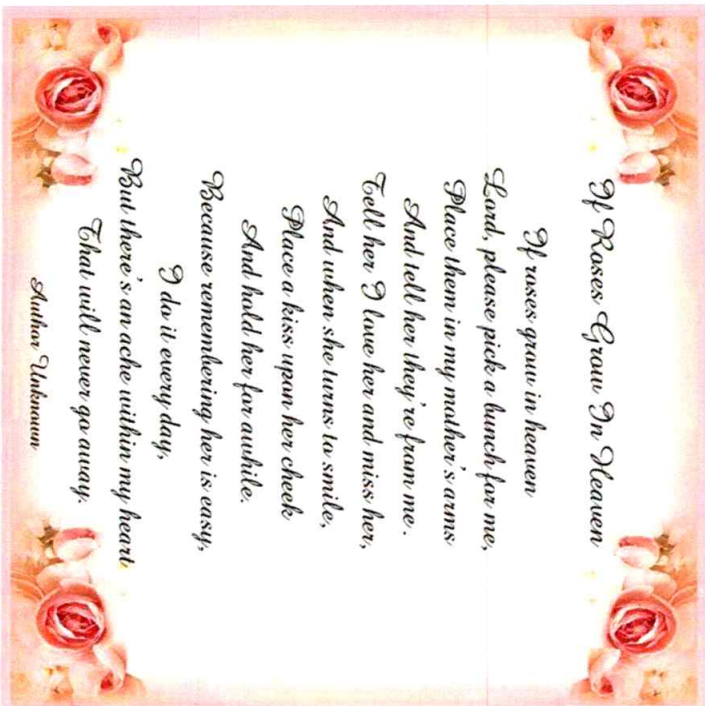 If Roses Grow In Heaven
If roses grow in heaven
Lord, please pick a bunch for me,
Place them in my mother's arms
And tell her they're from me.
Tell her I love her and miss her,
And when she turns to smile,
Place a kiss upon her cheek
And hold her for awhile.
Because remembering her is easy,
I do it every day,
But there's an ache within my heart
That will never go away.
Author Unknown